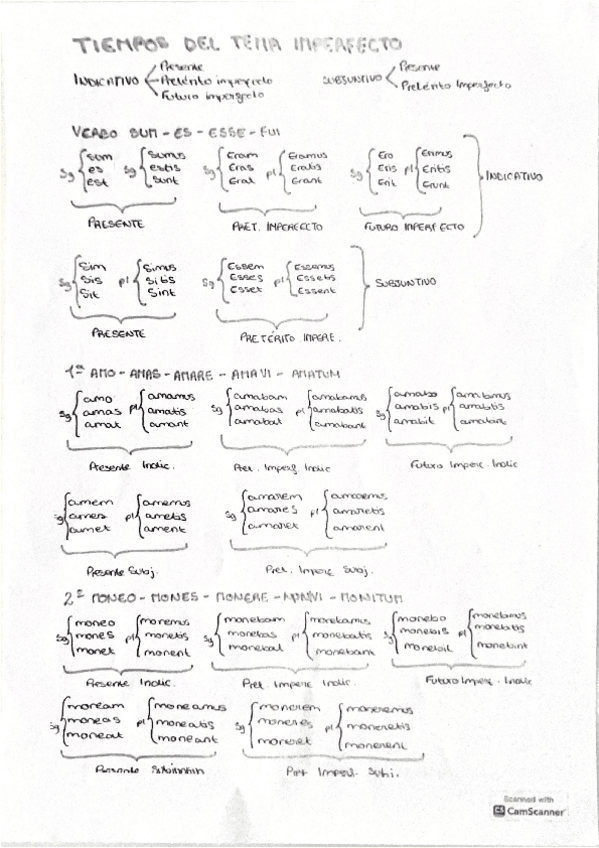 TIEMPOS DEL TEMA IMPERFECTO
INDICATIVO Presente
Pretérito imperfecto
Futuro imperfecto
SUBJUNTIVO Presente
Pretérito Imperfecto
VERBO SUM - ES - ESSE - FUI
Sg sum es est Sg sumus estis sunt
PRESENTE
Sg Eram Eras Erat pl Eramus Eratis Erant
PRET. IMPERFECTO
Sg Ero Eris Erit pl Erimus Eritis Erunt
FUTURO IMPERFECTO
INDICATIVO
Sg Sim Sis Sit pl Simus Sitis Sint
PRESENTE
Sg Essem Esses Esset pl Essemus Essetis Essent
PRETÉRITO IMPERF.
SUBJUNTIVO
1ª AMO - AMAS - AMARE - AMAVI - AMATUM
Sg amo amas amat pl amamus amatis amant
Presente Indic.
Sg amabam amabas amabat pl amabamus amabatis amabant
Pret. Imperf. Indic
Sg amabo amabis amabit pl
Futuro Imperf. Indic
Sg amem ames amet pl amemus ametis ament
Presente Subj.
Sg amarem amares amaret pl amaremus amaretis amarent
Pret. Imperf. Subj.
2ª MONEO - MONES - MONERE - MONUI - MONITUM
Sg moneo mones monet pl monemus monetis monent
Presente Indic.
Sg monebam monebas monebat pl monebamus monebatis monebant
Pret. Imperf. Indic.
Sg monebo monebis monebit pl monebimus monebitis monebint
Futuro Imperf. Indic
Sg moneam moneas moneat pl moneamus moneatis moneant
Presente
Sg monerem moneres moneret pl moneremus moneretis monerent
Pret. Imperf. Subj.
Scanned with
CS CamScanner